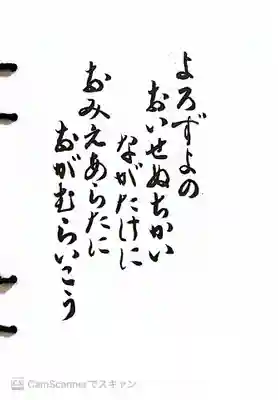 よろずよの
おいせぬちかい
ながたけに
おみえあらたに
おがむらいこう
CamScannerでスキャン